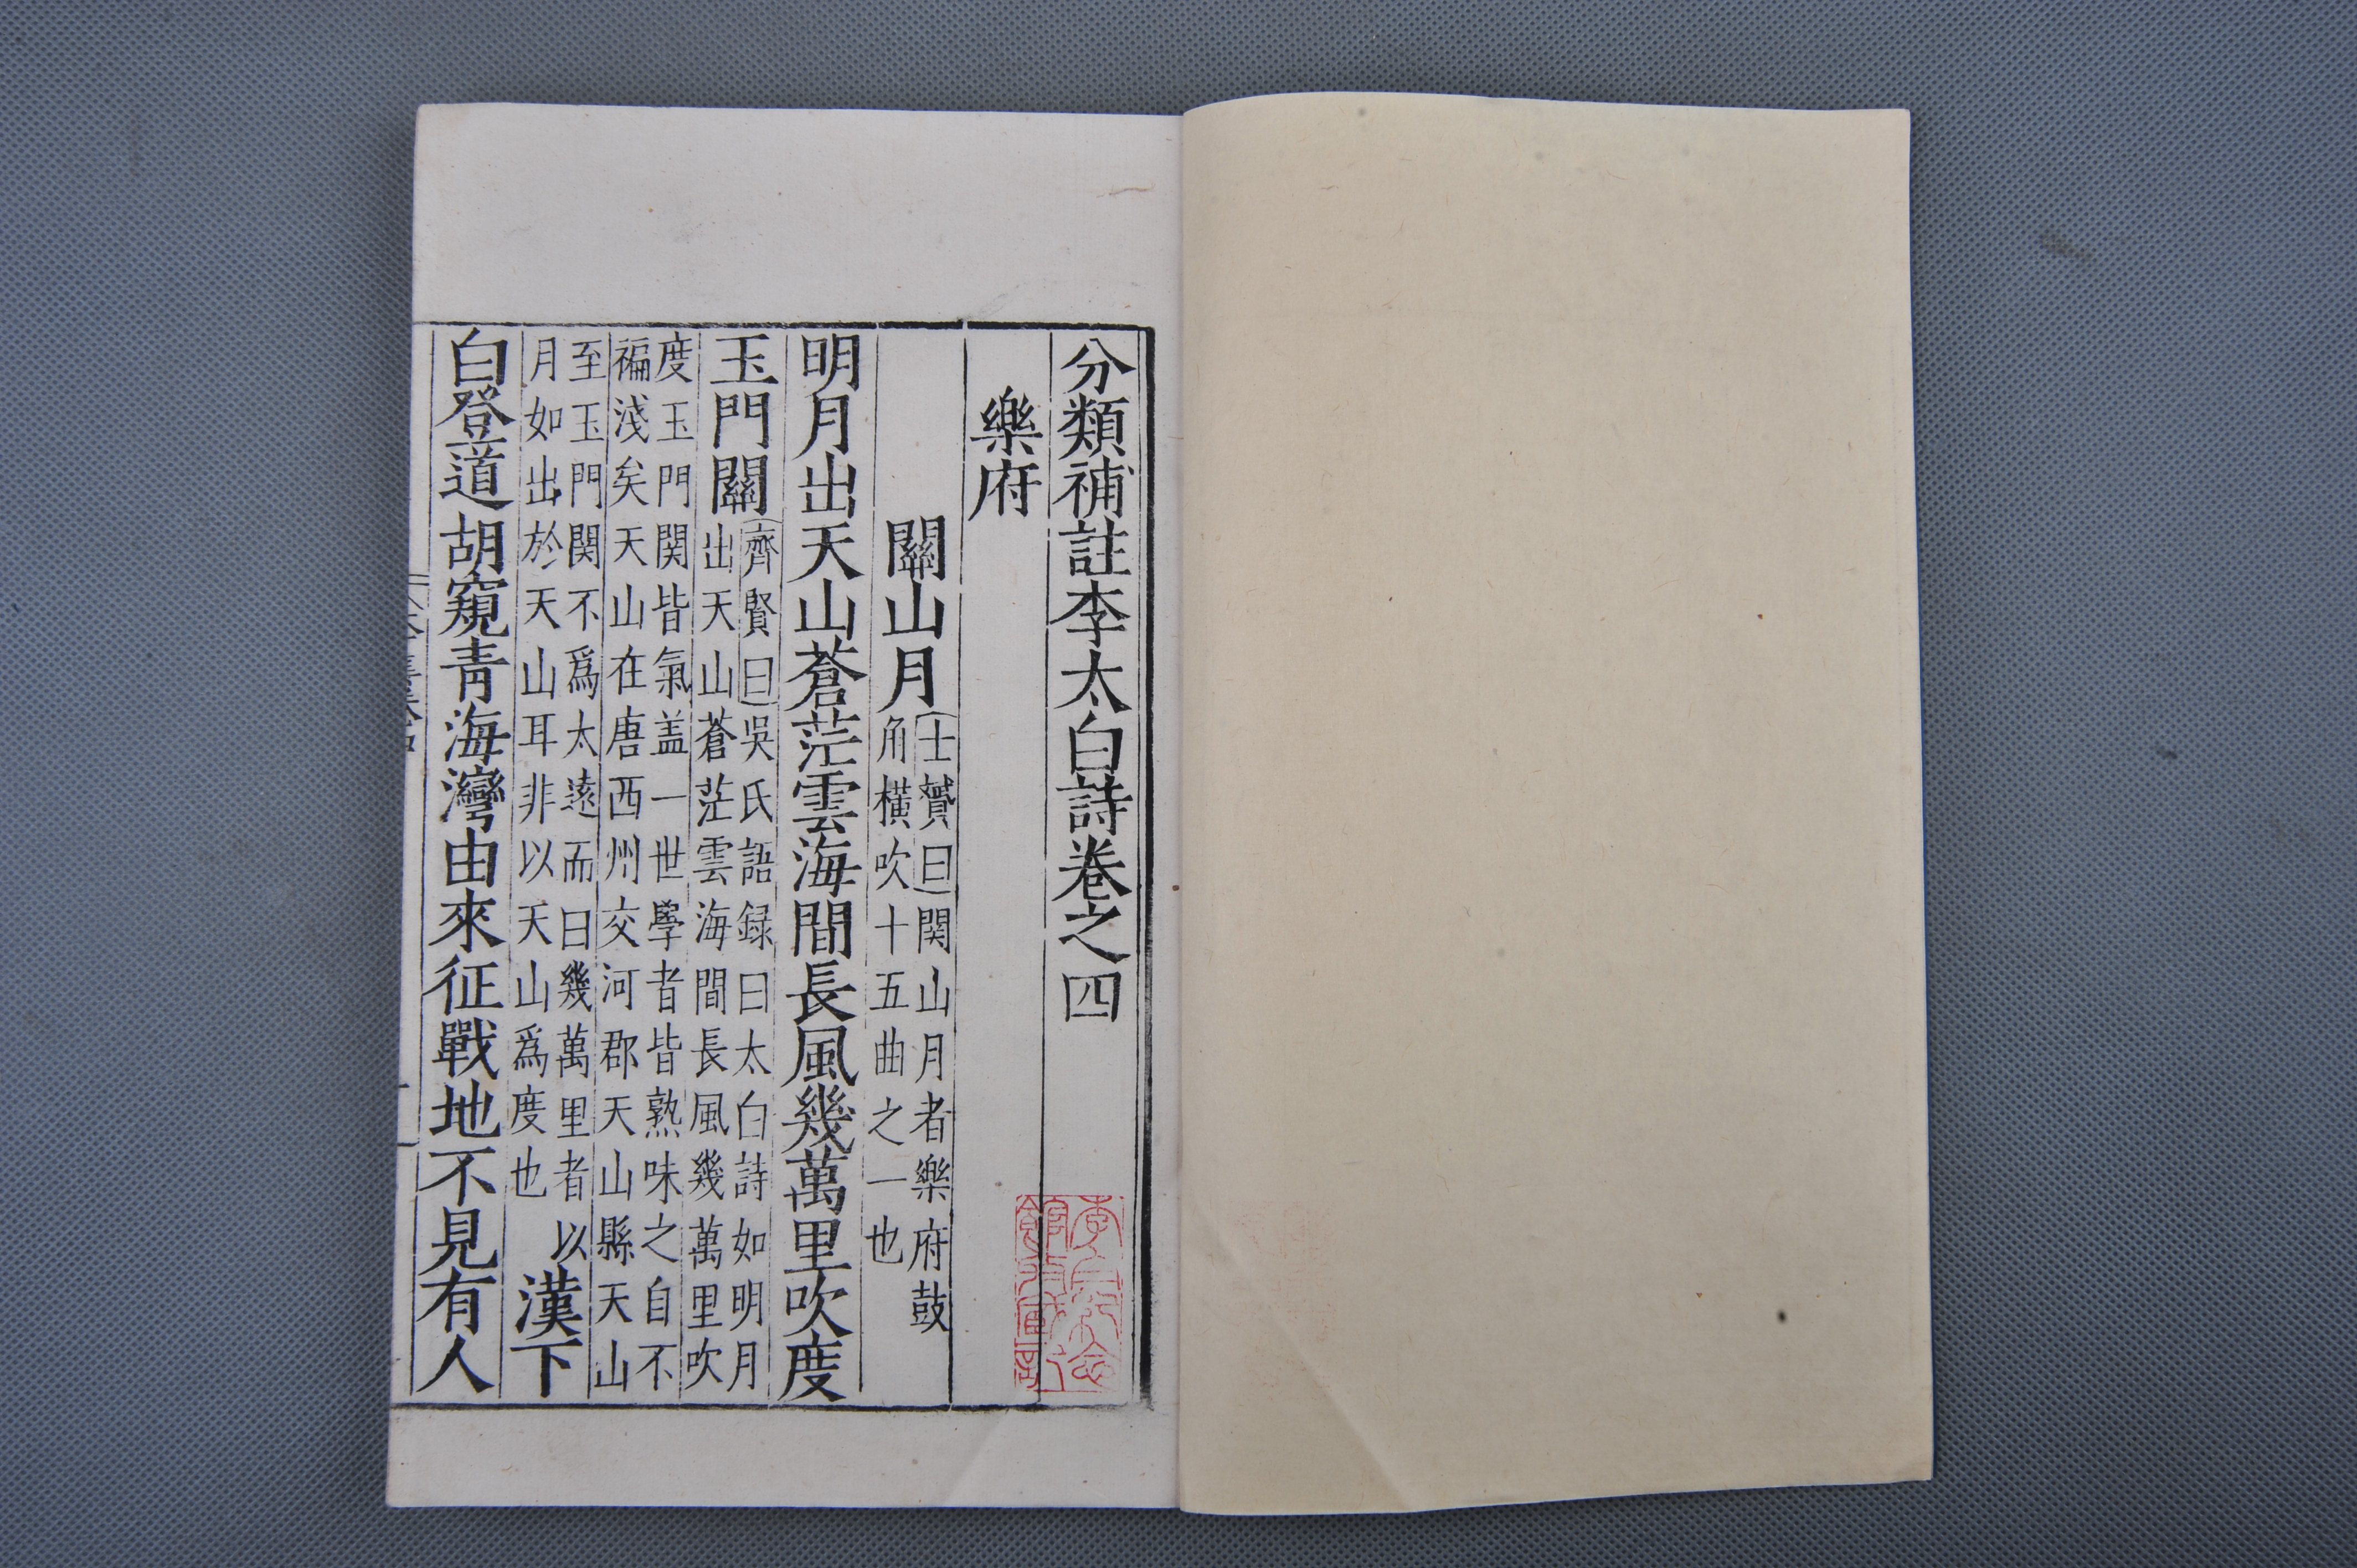 分類補註李太白詩卷之四
樂府
關山月
士贇曰関山月者樂府鼓
角橫吹十五曲之一也
明月出天山蒼茫雲海間長風幾萬里吹度
玉門關
齊賢曰吳氏語録曰太白詩如明月
出天山蒼茫雲海間長風幾萬里吹
度玉門関皆氣盖一世學者皆熟味之自不
褊淺矣天山在唐西州交河郡天山縣天山
至玉門関不爲太逺而曰幾萬里者以
月如出於天山耳非以天山爲度也
漢下
白登道胡窺青海灣由來征戰地不見有人
李白紀念
館有藏記